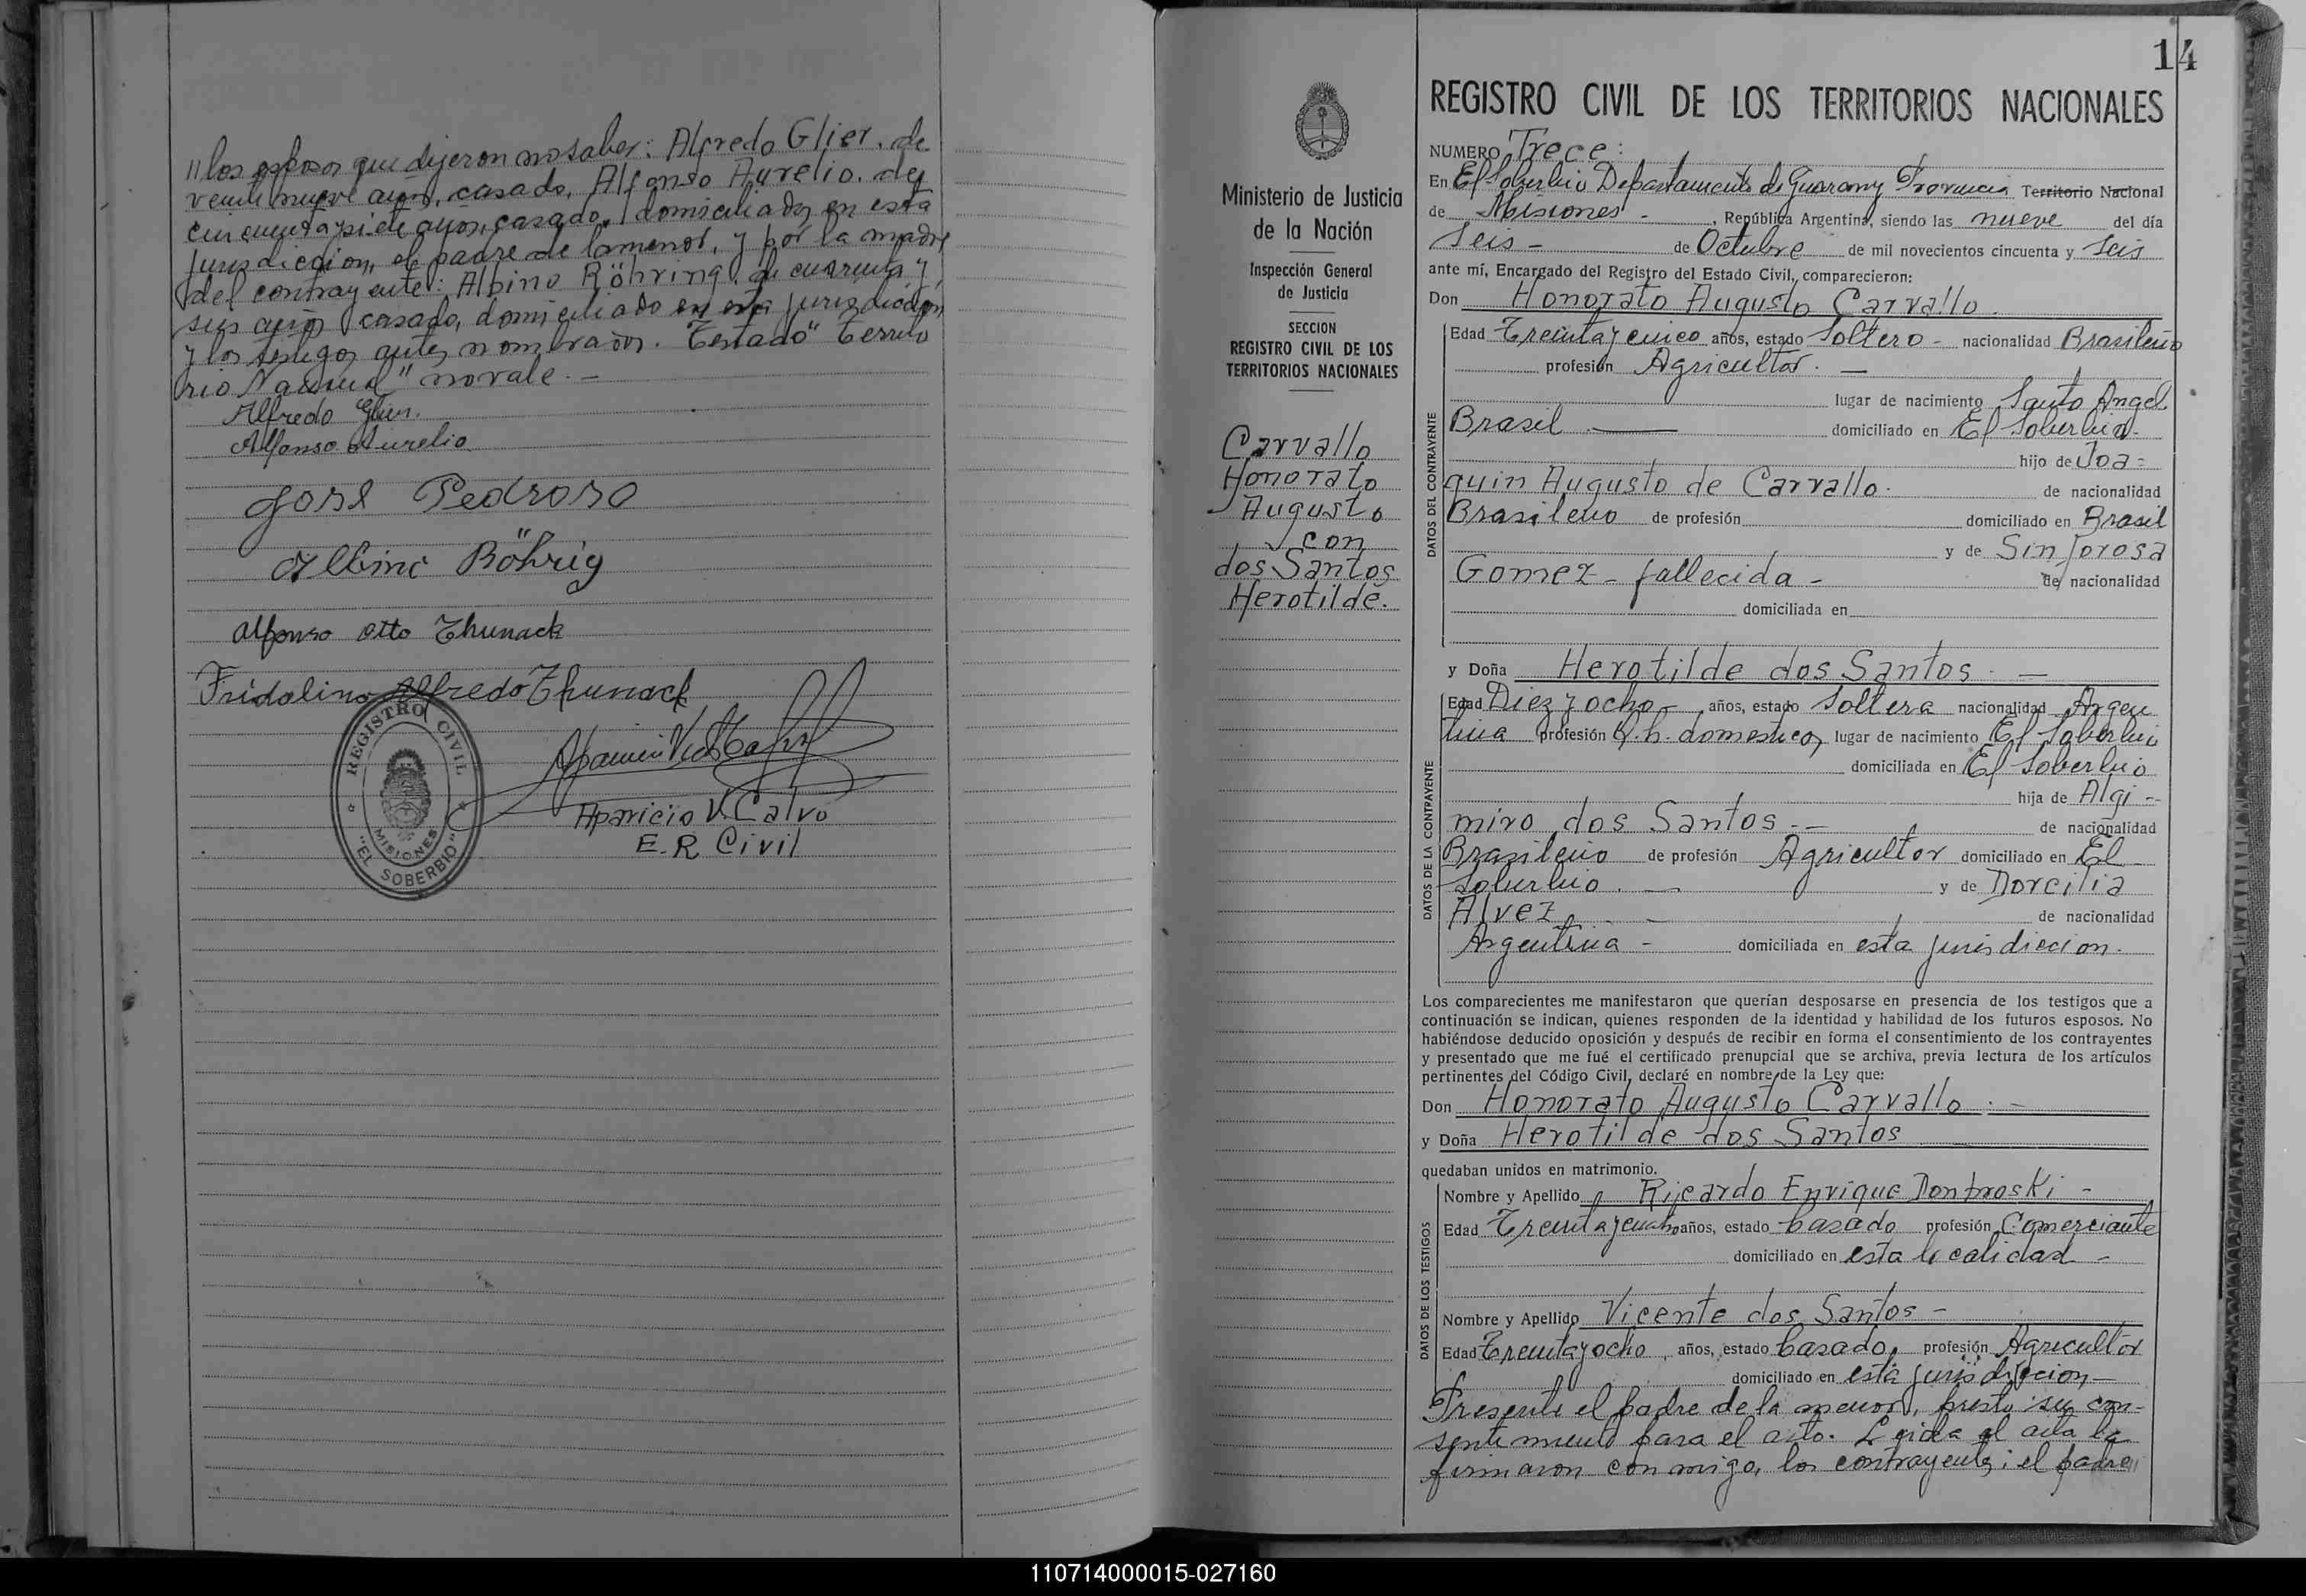 "los esposos que dijeron no saber: Alfredo Glier, de
veintinueve años, casado, Alfonso Aurelio, de
cincuenta y siete años, casado, domiciliados en esta
jurisdiccion, el padre de la menor, y por la madre
del contrayente: Albino Röhring, de cuarenta y
seis años casado, domiciliado en esta jurisdiccion
y los testigos antes nombrados. Testado "Territo
rio Nacional" no vale. -
Alfredo Glier.
Alfonso Aurelio
José Pedroso
Albino Böhrig
Alfonso Otto Thunack
Fridolino Alfredo Thunack
REGISTRO CIVIL
MISIONES
"EL SOBERBIO"
Aparicio V. Calvo
E. R. Civil
14
Ministerio de Justicia
de la Nación
Inspección General
de Justicia
SECCION
REGISTRO CIVIL DE LOS
TERRITORIOS NACIONALES
Carvallo
Honorato
Augusto
con
dos Santos
Herotilde.
REGISTRO CIVIL DE LOS TERRITORIOS NACIONALES
NUMERO Trece:
En El Soberbio Departamento de Guarany Provincia Territorio Nacional
de Misiones - , República Argentina, siendo las nueve del día
Seis - de Octubre de mil novecientos cincuenta y seis
ante mí, Encargado del Registro del Estado Civil, comparecieron:
Don Honorato Augusto Carvallo.
DATOS DEL CONTRAYENTE
Edad Treinta y cinco años, estado Soltero - nacionalidad Brasileño
profesión Agricultor. —
lugar de nacimiento Santo Angel
Brasil — domiciliado en El Soberbio -
hijo de Joa=
quin Augusto de Carvallo. de nacionalidad
Brasileño de profesión domiciliado en Brasil
y de Sinforosa
Gomez - fallecida - de nacionalidad
domiciliada en
y Doña Herotilde dos Santos. —
DATOS DE LA CONTRAYENTE
Edad Diez y ocho - años, estado Soltera nacionalidad Argen
tina profesión Q. h. domesticos lugar de nacimiento El Soberbio
domiciliada en El Soberbio
hija de Algi -
miro dos Santos. — de nacionalidad
Brasileño de profesión Agricultor domiciliado en El
Soberbio. — y de Dorcilia
Alvez. — de nacionalidad
Argentina - domiciliada en esta jurisdiccion.
Los comparecientes me manifestaron que querían desposarse en presencia de los testigos que a
continuación se indican, quienes responden de la identidad y habilidad de los futuros esposos. No
habiéndose deducido oposición y después de recibir en forma el consentimiento de los contrayentes
y presentado que me fué el certificado prenupcial que se archiva, previa lectura de los artículos
pertinentes del Código Civil, declaré en nombre de la Ley que:
Don Honorato Augusto Carvallo. —
y Doña Herotilde dos Santos
quedaban unidos en matrimonio.
DATOS DE LOS TESTIGOS
Nombre y Apellido Ricardo Enrique Dombroski -
Edad Treinta y cuatro años, estado Casado profesión Comerciante
domiciliado en esta localidad -
Nombre y Apellido Vicente dos Santos -
Edad Treinta y ocho, años, estado Casado, profesión Agricultor
domiciliado en esta jurisdiccion -
Presente el padre de la menor, prestó su con-
sentimiento para el acto. Leida el acta la
firmaron conmigo, los contrayentes; el padre"
110714000015-027160